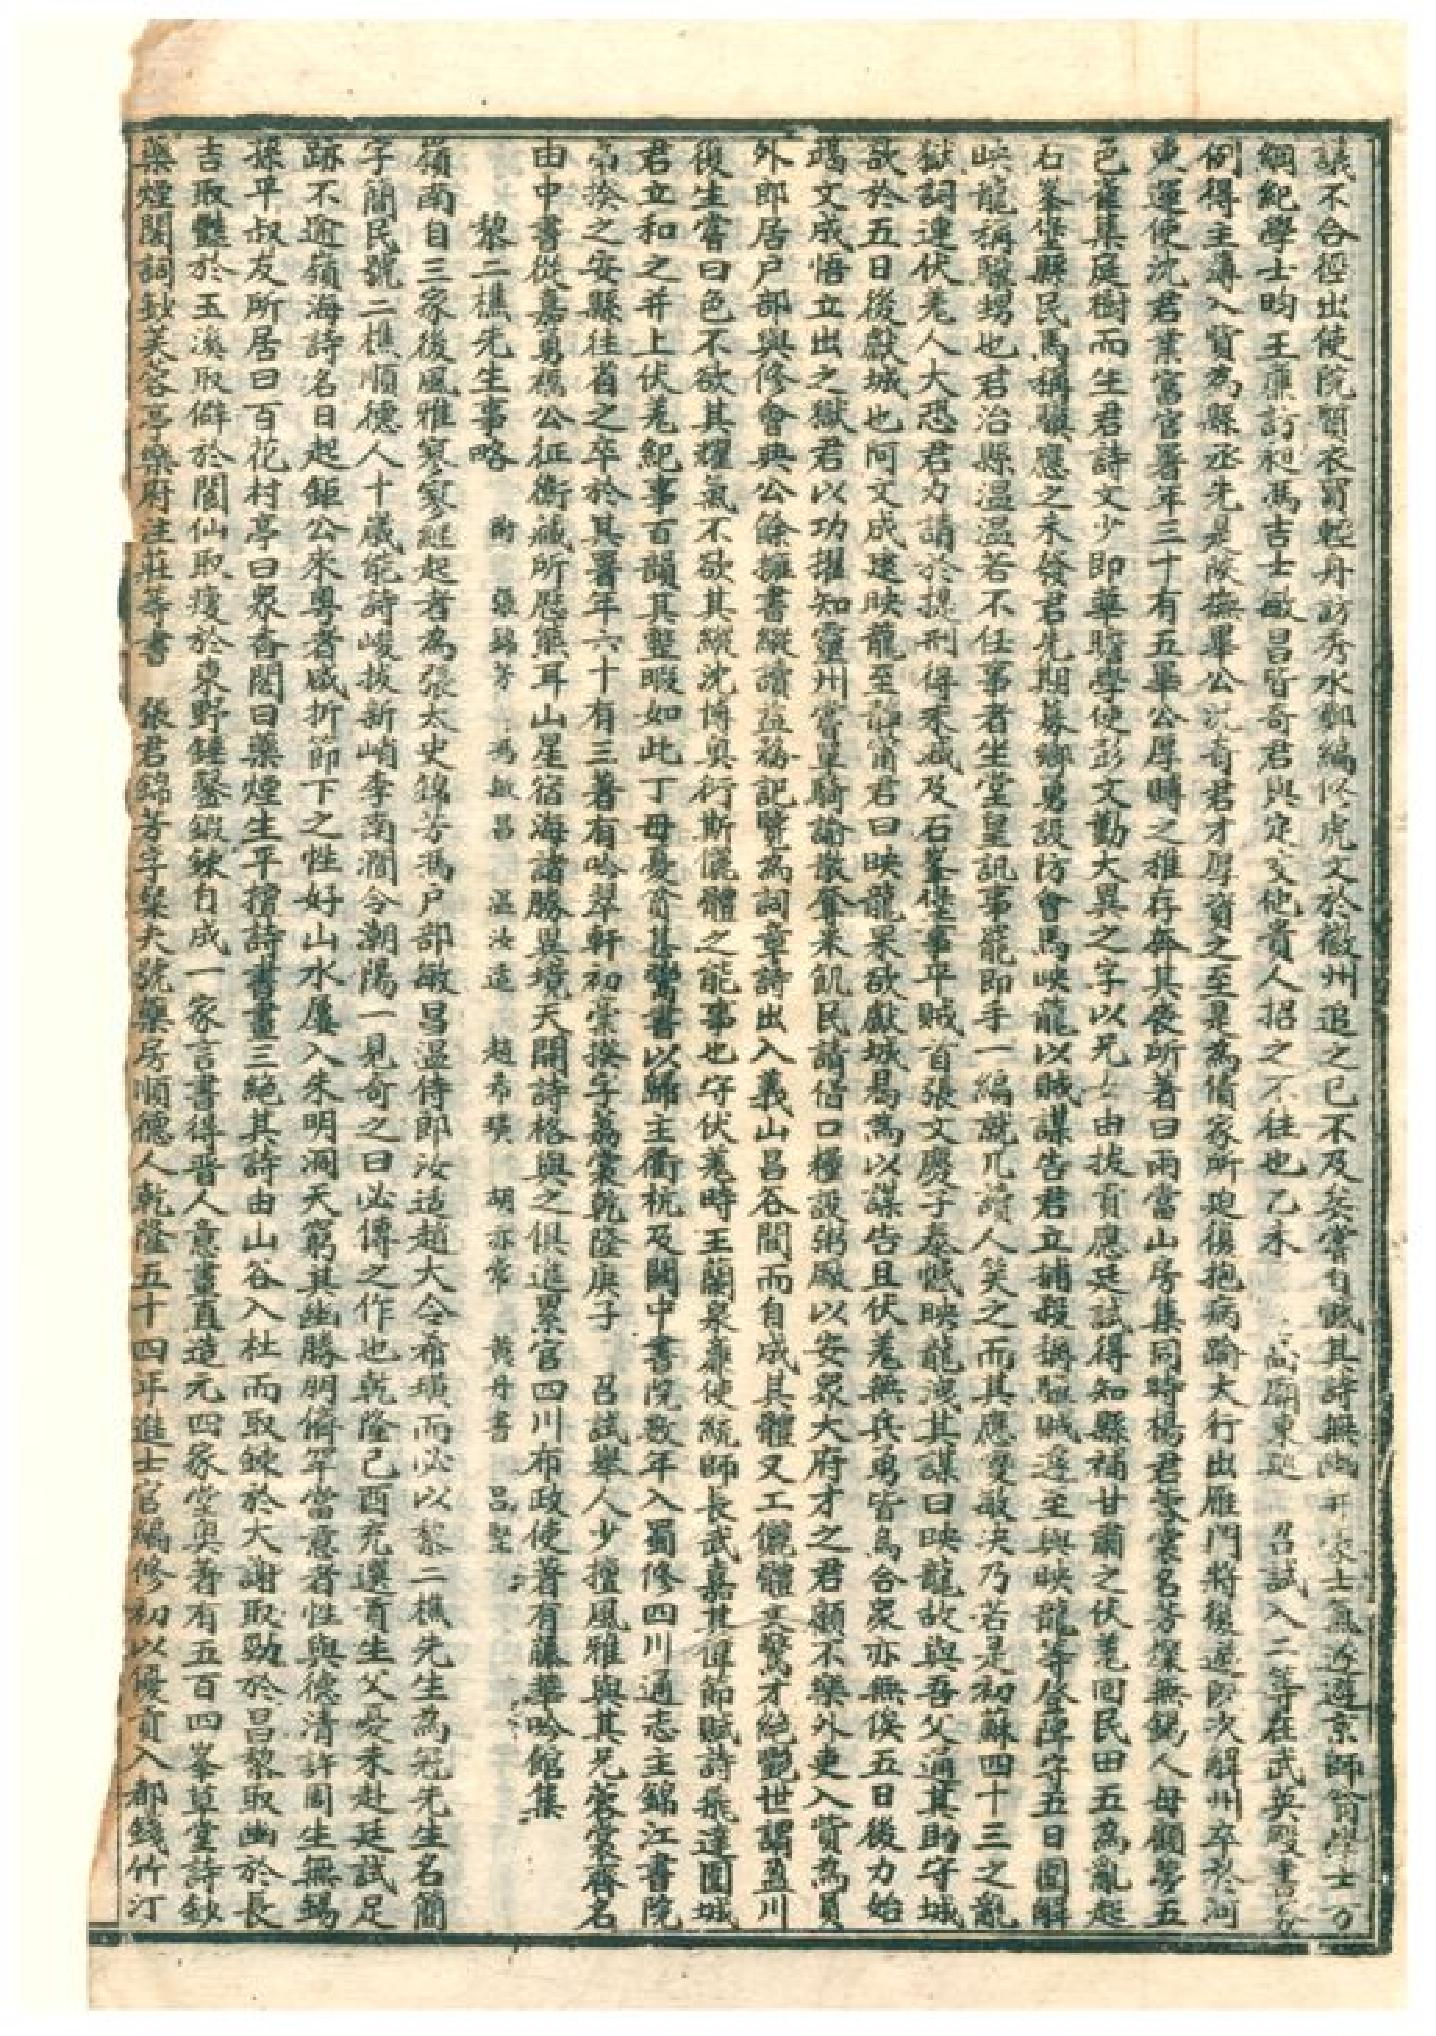 議不合徑出使院質衣買輕舟訪秀水鄭編修虎文於徽州追之已不及矣嘗自憾其詩無幽并豪士氣遂遊京師翁學士方
綱紀學士昀王廉訪昶馮吉士敏昌皆奇君與定交他貴人招之不往也乙未 高廟東巡 召試入二等在武英殿書簽
例得主簿入貲為縣丞先是陝撫畢公沅奇君才厚資之至是為債家所迫復抱病踰太行出雁門將復遊即次解州卒於河
東運使沈君業富官署年三十有五畢公厚賻之稚存奔其喪所著曰兩當山房集同時楊君蓉裳名芳燦無錫人母顧夢五
色雀集庭樹而生君詩文少即華贍學使彭文勤大異之字以兄女由拔貢應廷試得知縣補甘肅之伏羌回民田五為亂起
石峯堡縣民馬稱驥應之未發君先期募鄉勇設防會馬映龍以賊謀告君立捕殺稱驥賊遂至與映龍等登陴守五日圍解
映龍稱驥甥也君治縣溫溫若不任事者坐堂皇訊事罷即手一編就几讀人笑之而其應變敏決乃若是初蘇四十三之亂
獄詞連伏羌人大恐君力請於提刑得末減及石峯堡事平賊首張文慶子泰憾映龍洩其謀曰映龍故與吾父通其助守城
欲於五日後獻城也阿文成逮映龍至詰甯君曰映龍果欲獻城曷為以謀告且伏羌無兵勇皆烏合眾亦無俟五日後力始
竭文成悟立出之獄君以功擢知靈州嘗單騎諭散奪米飢民請借口糧設粥廠以安眾大府才之君顧不樂外吏入貲為員
外郎居戶部與修會典公餘擁書縱讀益務記覽為詞章詩出入義山昌谷間而自成其體又工儷體文驚才絕豔世謂盈川
復生嘗曰色不欲其耀氣不欲其縱沈博奧衍斯儷體之能事也守伏羌時王蘭泉廉使統師長武嘉其偉節賦詩飛達圍城
君立和之并上伏羌紀事百韻其整暇如此丁母憂貧甚鬻書以歸主衢杭及關中書院數年入蜀修四川通志主錦江書院
弟揆之安縣往省之卒於其署年六十有三著有吟翠軒初稾揆字荔裳乾隆庚子 召試舉人少擅風雅與其兄蓉裳齊名
由中書從嘉勇福公征衛藏所歷熊耳山星宿海諸勝異境天開詩格與之俱進累官四川布政使著有藤華吟館集
黎二樵先生事略 附 張錦芳 馮敏昌 溫汝适 趙希璜 胡亦常 黃丹書 呂堅
嶺南自三家後風雅寥寥繼起者為張太史錦芳馮戶部敏昌溫侍郎汝适趙大令希璜而必以黎二樵先生為冠先生名簡
字簡民號二樵順德人十歲能詩峻拔新峭李南澗令潮陽一見奇之曰必傳之作也乾隆己酉充選貢生父憂未赴廷試足
跡不逾嶺海詩名日起鉅公來粵者咸折節下之性好山水屢入朱明洞天窮其幽勝朋儕罕當意者性與德清許周生無錫
孫平叔友所居曰百花村亭曰眾香閣曰藥煙生平擅詩書畫三絕其詩由山谷入杜而取鍊於大謝取勁於昌黎取幽於長
吉取豔於玉溪取僻於閬仙取瘦於東野錘鑿鍛鍊自成一家言書得晉人意畫直造元四家堂奧著有五百四峯草堂詩鈔
藥煙閣詞鈔芙蓉亭樂府注莊等書 張君錦芳字粲夫號藥房順德人乾隆五十四年進士官編修初以優貢入都錢竹汀